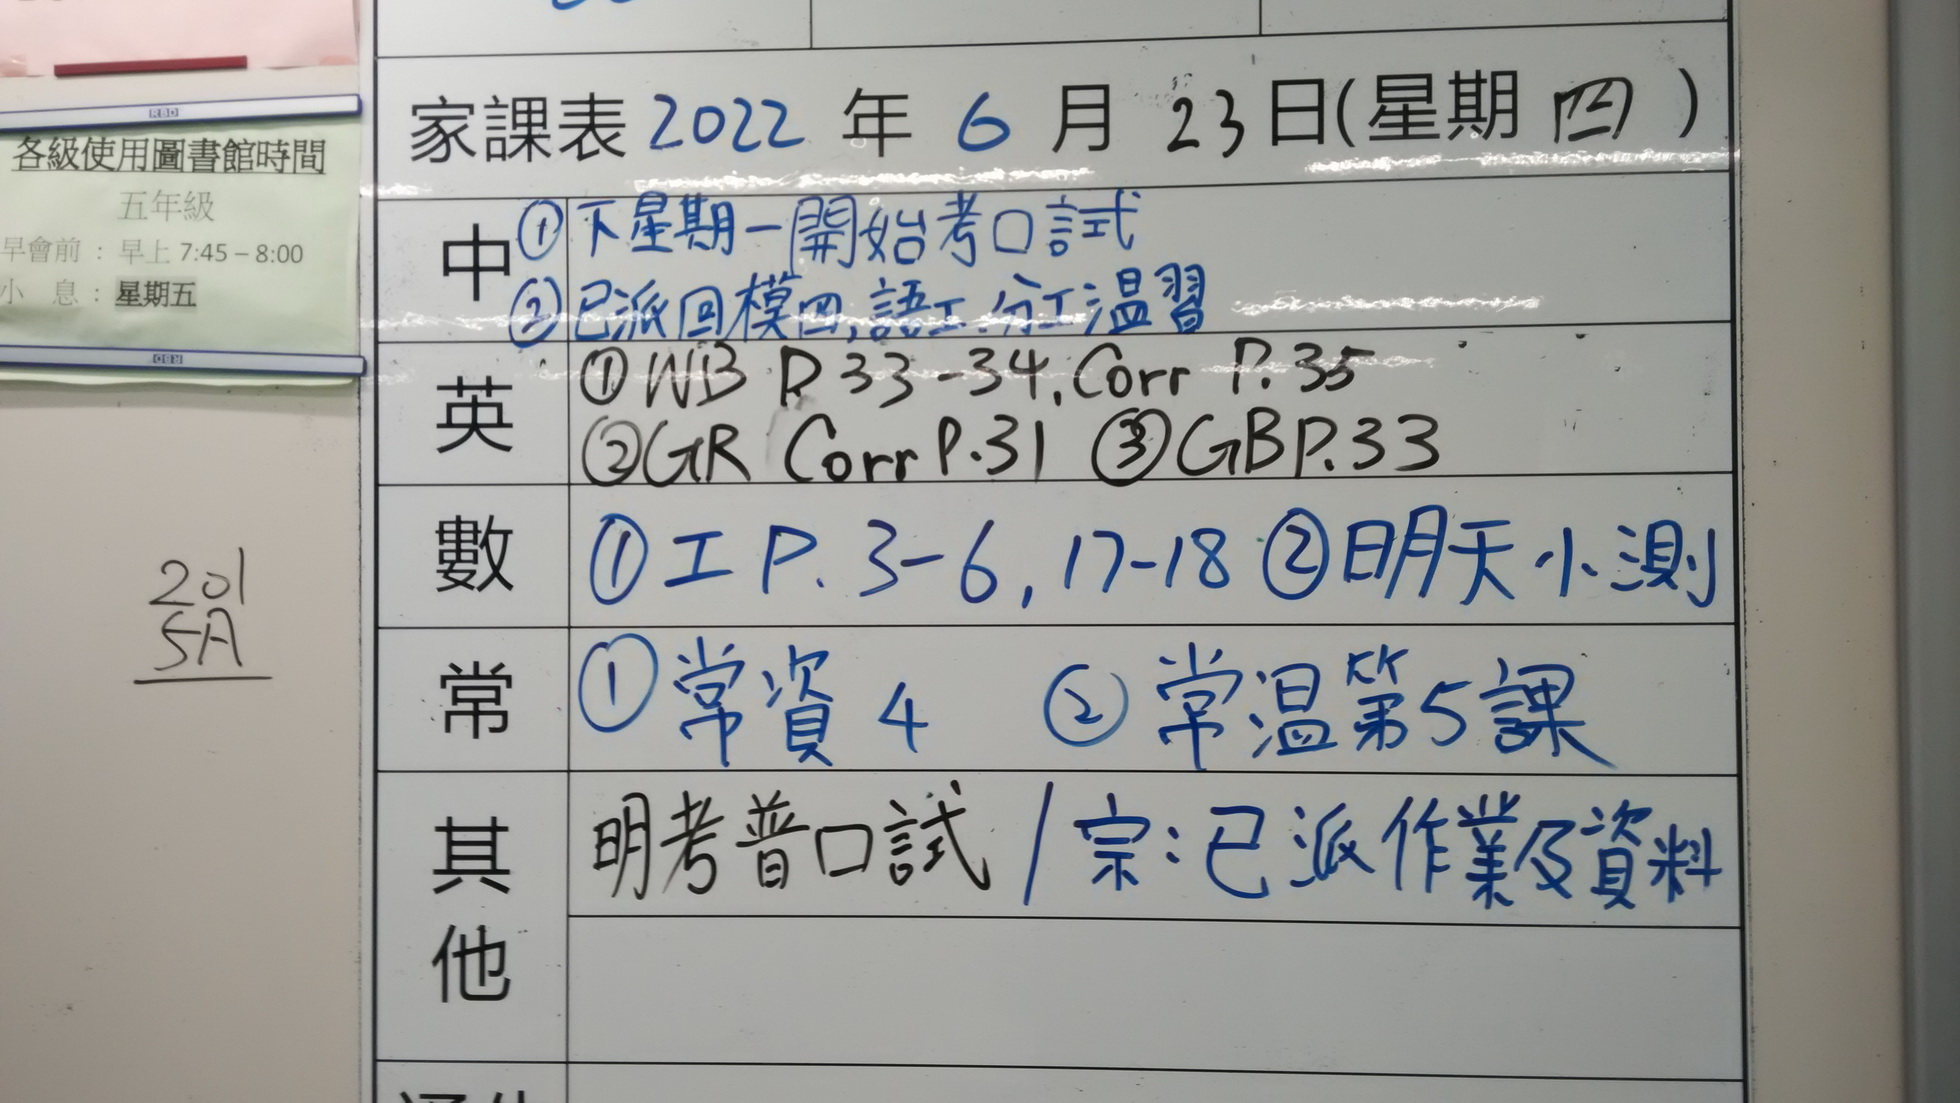 各級使用圖書館時間
五年級
早會前 : 早上 7:45 – 8:00
小 息 : 星期五
201
5A
家課表 2022 年 6 月 23 日(星期 四 )
中
①下星期一開始考口試
②已派回模四,語工.分工溫習
英
①WB P.33-34,Corr P.35
②GR Corr P.31 ③GB P.33
數
①工 P. 3-6, 17-18 ②明天小測
常
①常資 4 ②常溫第5課
其他
明考普口試 / 宗:已派作業及資料